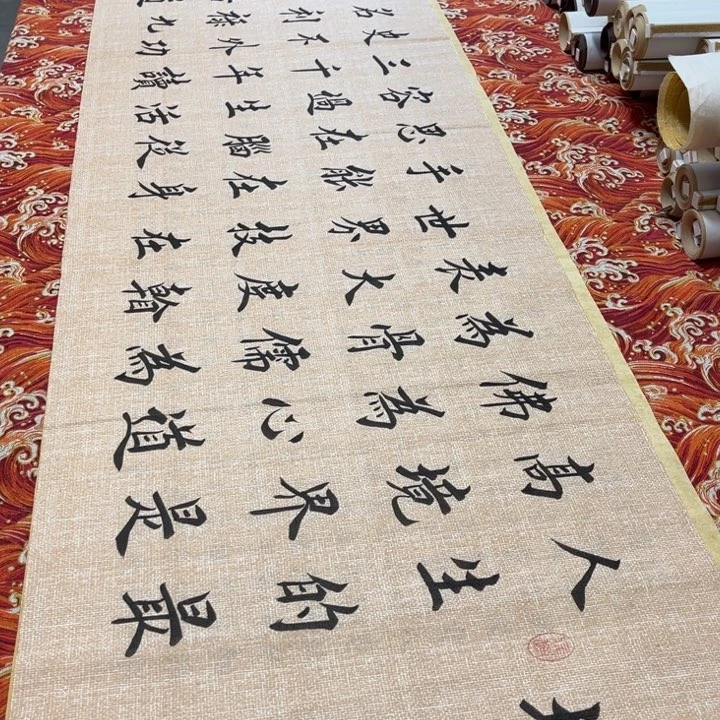 人生的最
高境界是
佛為心道
為骨儒為
表大度看
世界技在
手能在身
思在腦從
容過生活
三千年讀
史不外功
名利祿九